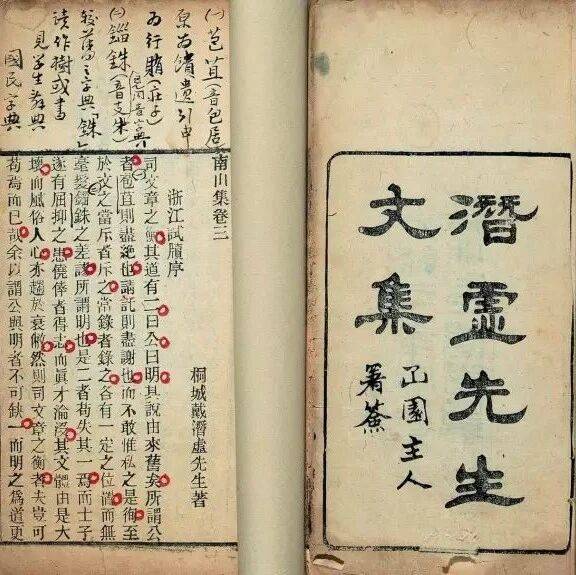 潛虛先生
文集
園主人
署簽
㈠苞苴(音包居)
原為饋遺引申
為行賄(莊子)
㈡錙銖(音支朱)
較舊之字典「銖」
讀作樹或書
見學生辭典
國民字典
南山集卷三
浙江試牘序
桐城戴潛虛先生著
司文章之衡其道有二曰公曰明其說由來舊矣所謂公
者苞苴則盡絕也請託則盡謝也而不敢惟私之是徇至
於文之當斥者斥之當錄者錄之各有一定之位置而無
毫髮錙銖之差謬所謂明也是二者苟失其一焉而士子
遂有屈抑之患僥倖者得志而眞才淪沒其文體由是大
壞而風俗人心亦趨於衰解然則司文章之衡者夫豈可
苟焉而已哉余以謂公與明者不可缺一而明之爲道更